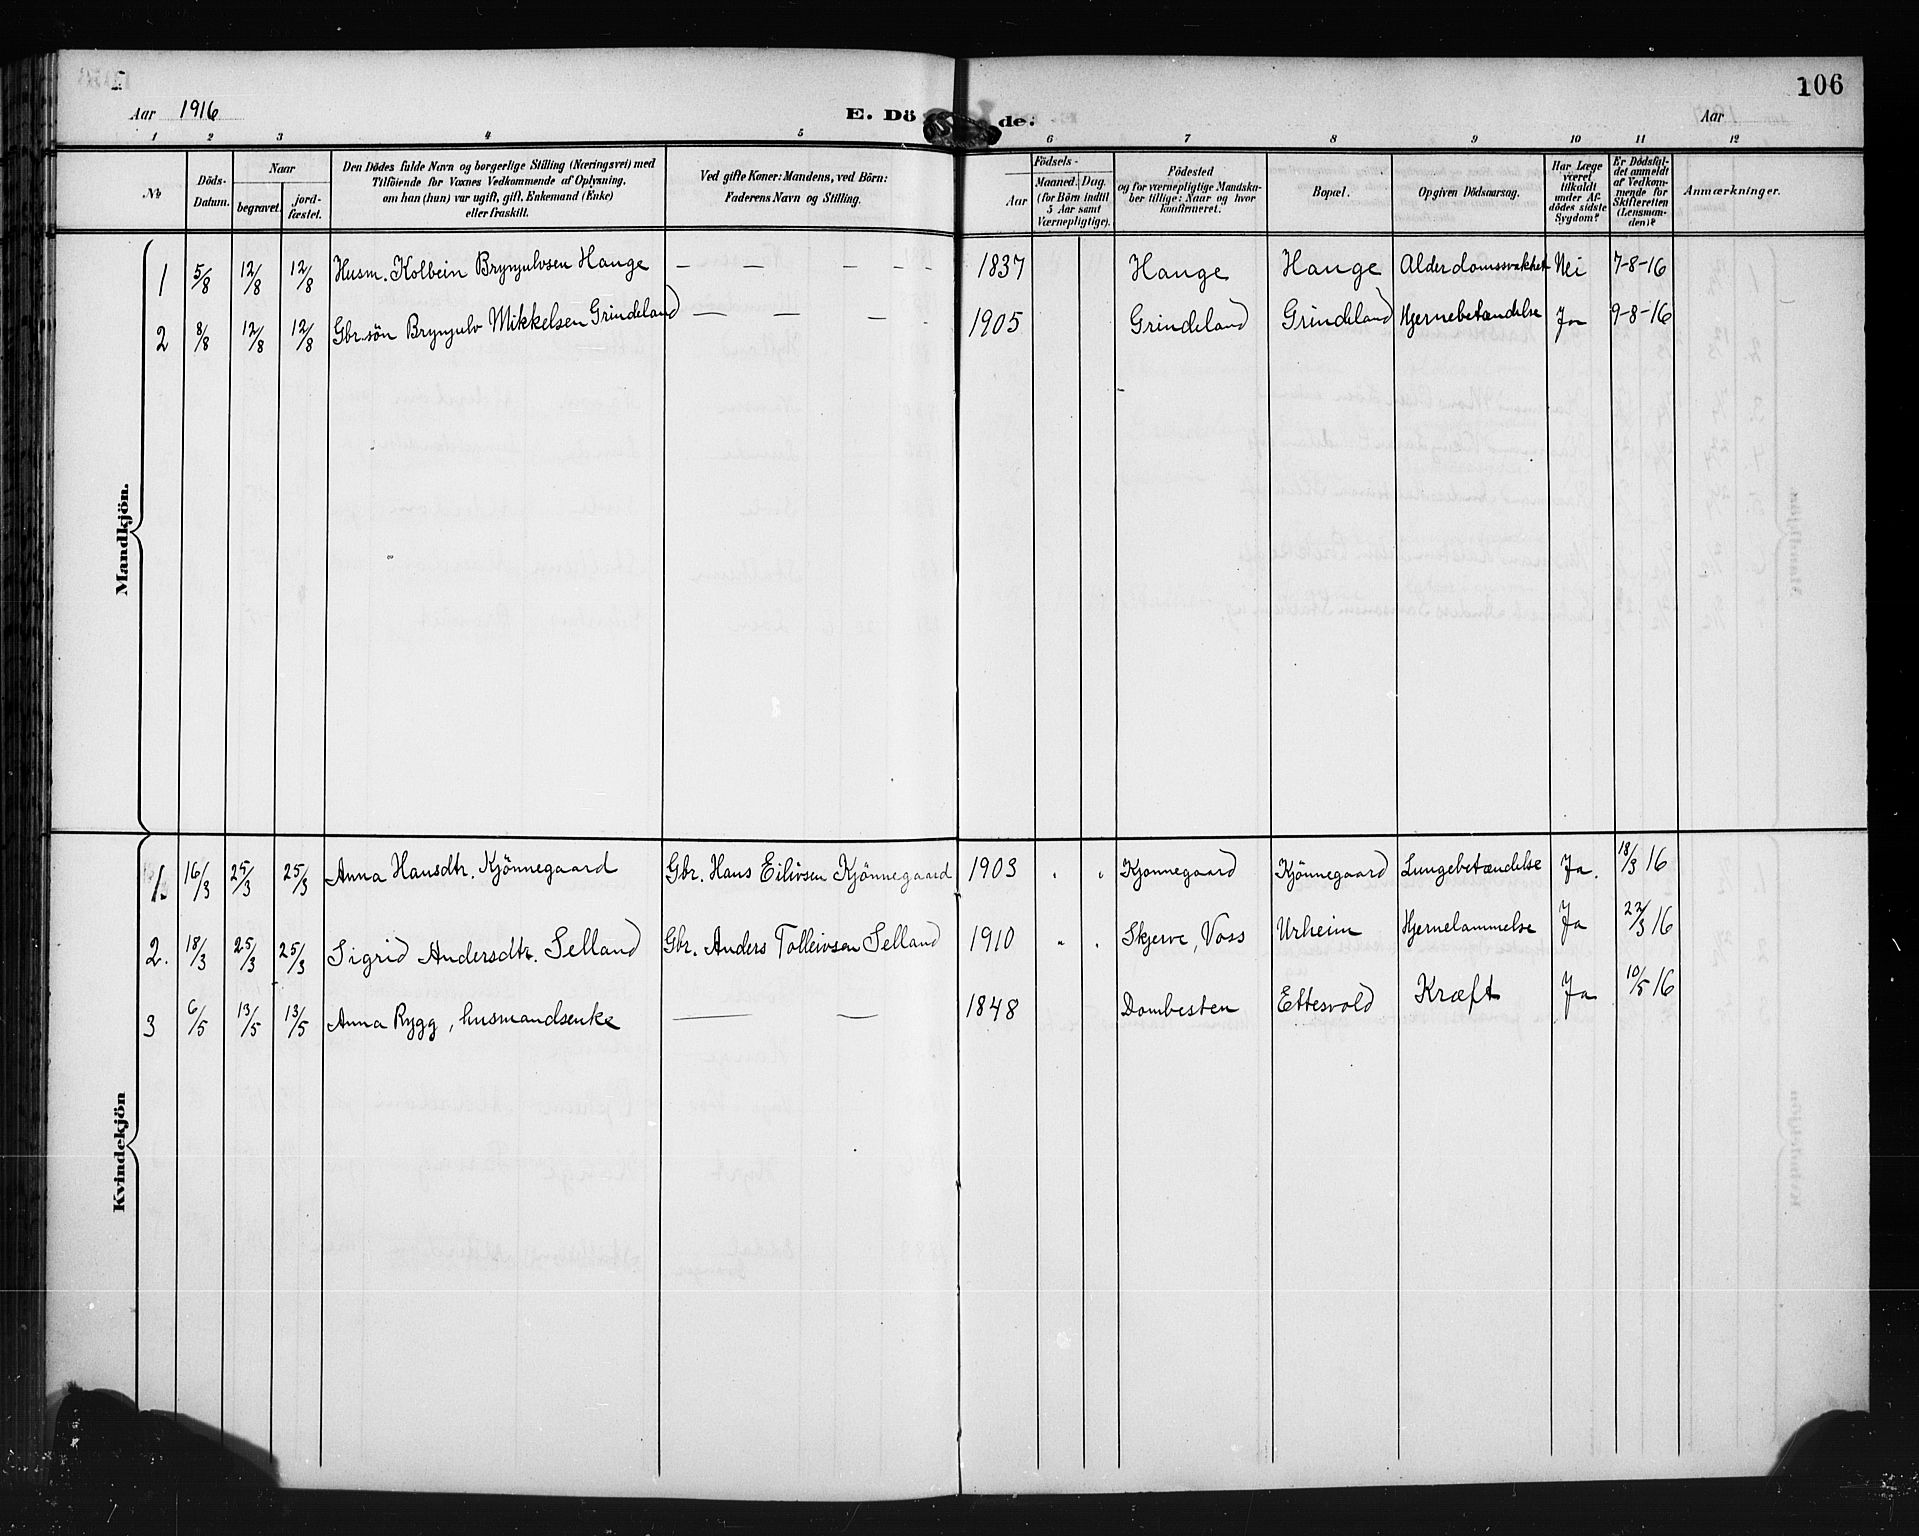 Aar 1916
E. Dö de:
106
Aar
1 2 3 4 5 6 7 8 9 10 11 12
No
Döds-Datum.
Naar
begravet.
jord-fæstet.
Den Dödes fulde Navn og borgerlige Stilling (Næringsvei) med
Tilföiende for Voxnes Vedkommende af Oplysning,
om han (hun) var ugift, gift, Enkemand (Enke)
eller fraskilt.
Ved gifte Koner: Mandens, ved Börn:
Faderens Navn og Stilling.
Födsels-
Aar
Maaned. Dag.
(for Börn indtil
5 Aar samt
Værnepligtige).
Födested
og for værnepligtige Mandska-
ber tillige: Naar og hvor
konfirmeret.
Bopæl.
Opgiven Dödsaarsag.
Har Læge
været
tilkaldt
under Af-
dödes sidste
Sygdom?
Er Dödsfal-
det anmeldt
af Vedkom-
mende for
Skifteretten
(Lensman-
den)?
Anmærkninger.
Mandkjön.
1 5/8 12/8 12/8 Husm. Kolbein Brynjulvsen Hauge — — — — — 1837 Hauge Hauge Alderdomssvakhet Nei 7-8-16
2 8/8 12/8 12/8 Gbr.sön Brynjulv Mikkelsen Grindeland — — — — 1905 Grindeland Grindeland Hjernebetændelse Ja 9-8-16
Kvindekjön
1. 16/3 25/3 25/3 Anna Hansdtr. Kjönnegaard Gbr. Hans Eilivsen Kjönnegaard 1903 " " Kjonnegaard Kjönnegaard Lungebetændelse Ja. 18/3 16
2. 18/3 25/3 25/3 Sigrid Andersdtr. Selland Gbr. Anders Tolleivsen Selland 1910 " " Skjerve, Voss Urheim Hjernelammelse Ja 22/3 16
3 6/5 13/5 13/5 Anna Rygg, husmandsenke — — 1848 Dombesten Ettesvold Kræft Ja 10/5 16